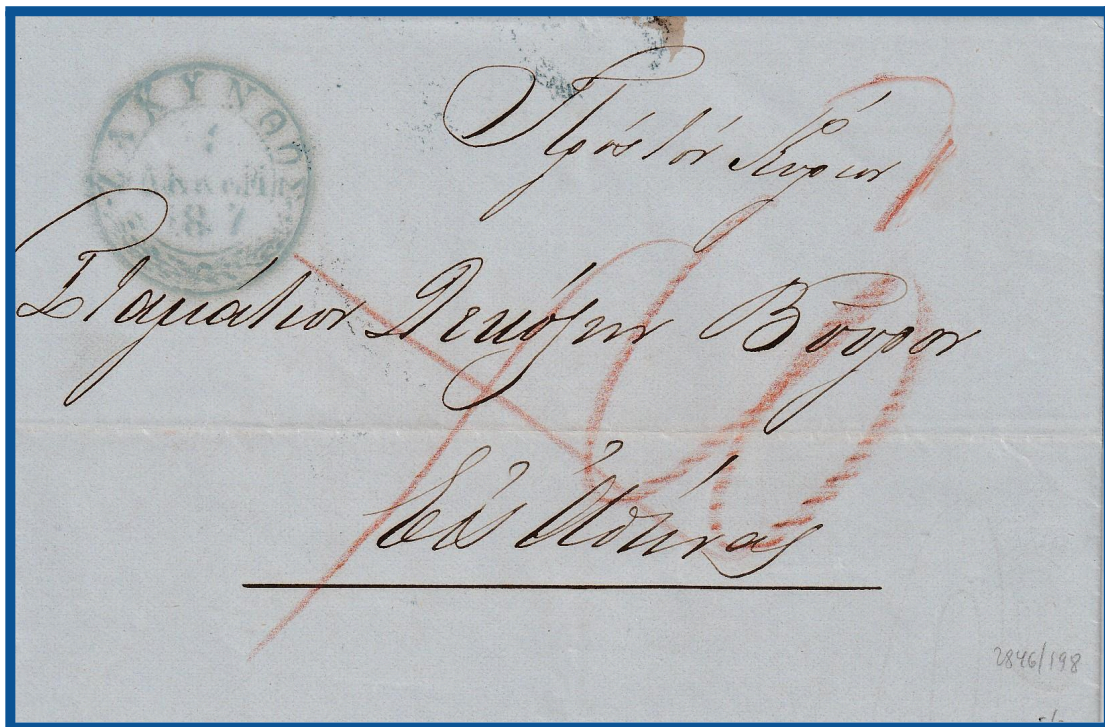 ΖΑΚΥΝΘΟΣ
Πρὸς τὸν Κύριον
Σταμάτιον Δεκόζην Βοῦρον
Εἰς Ἀθήνας
2846/198